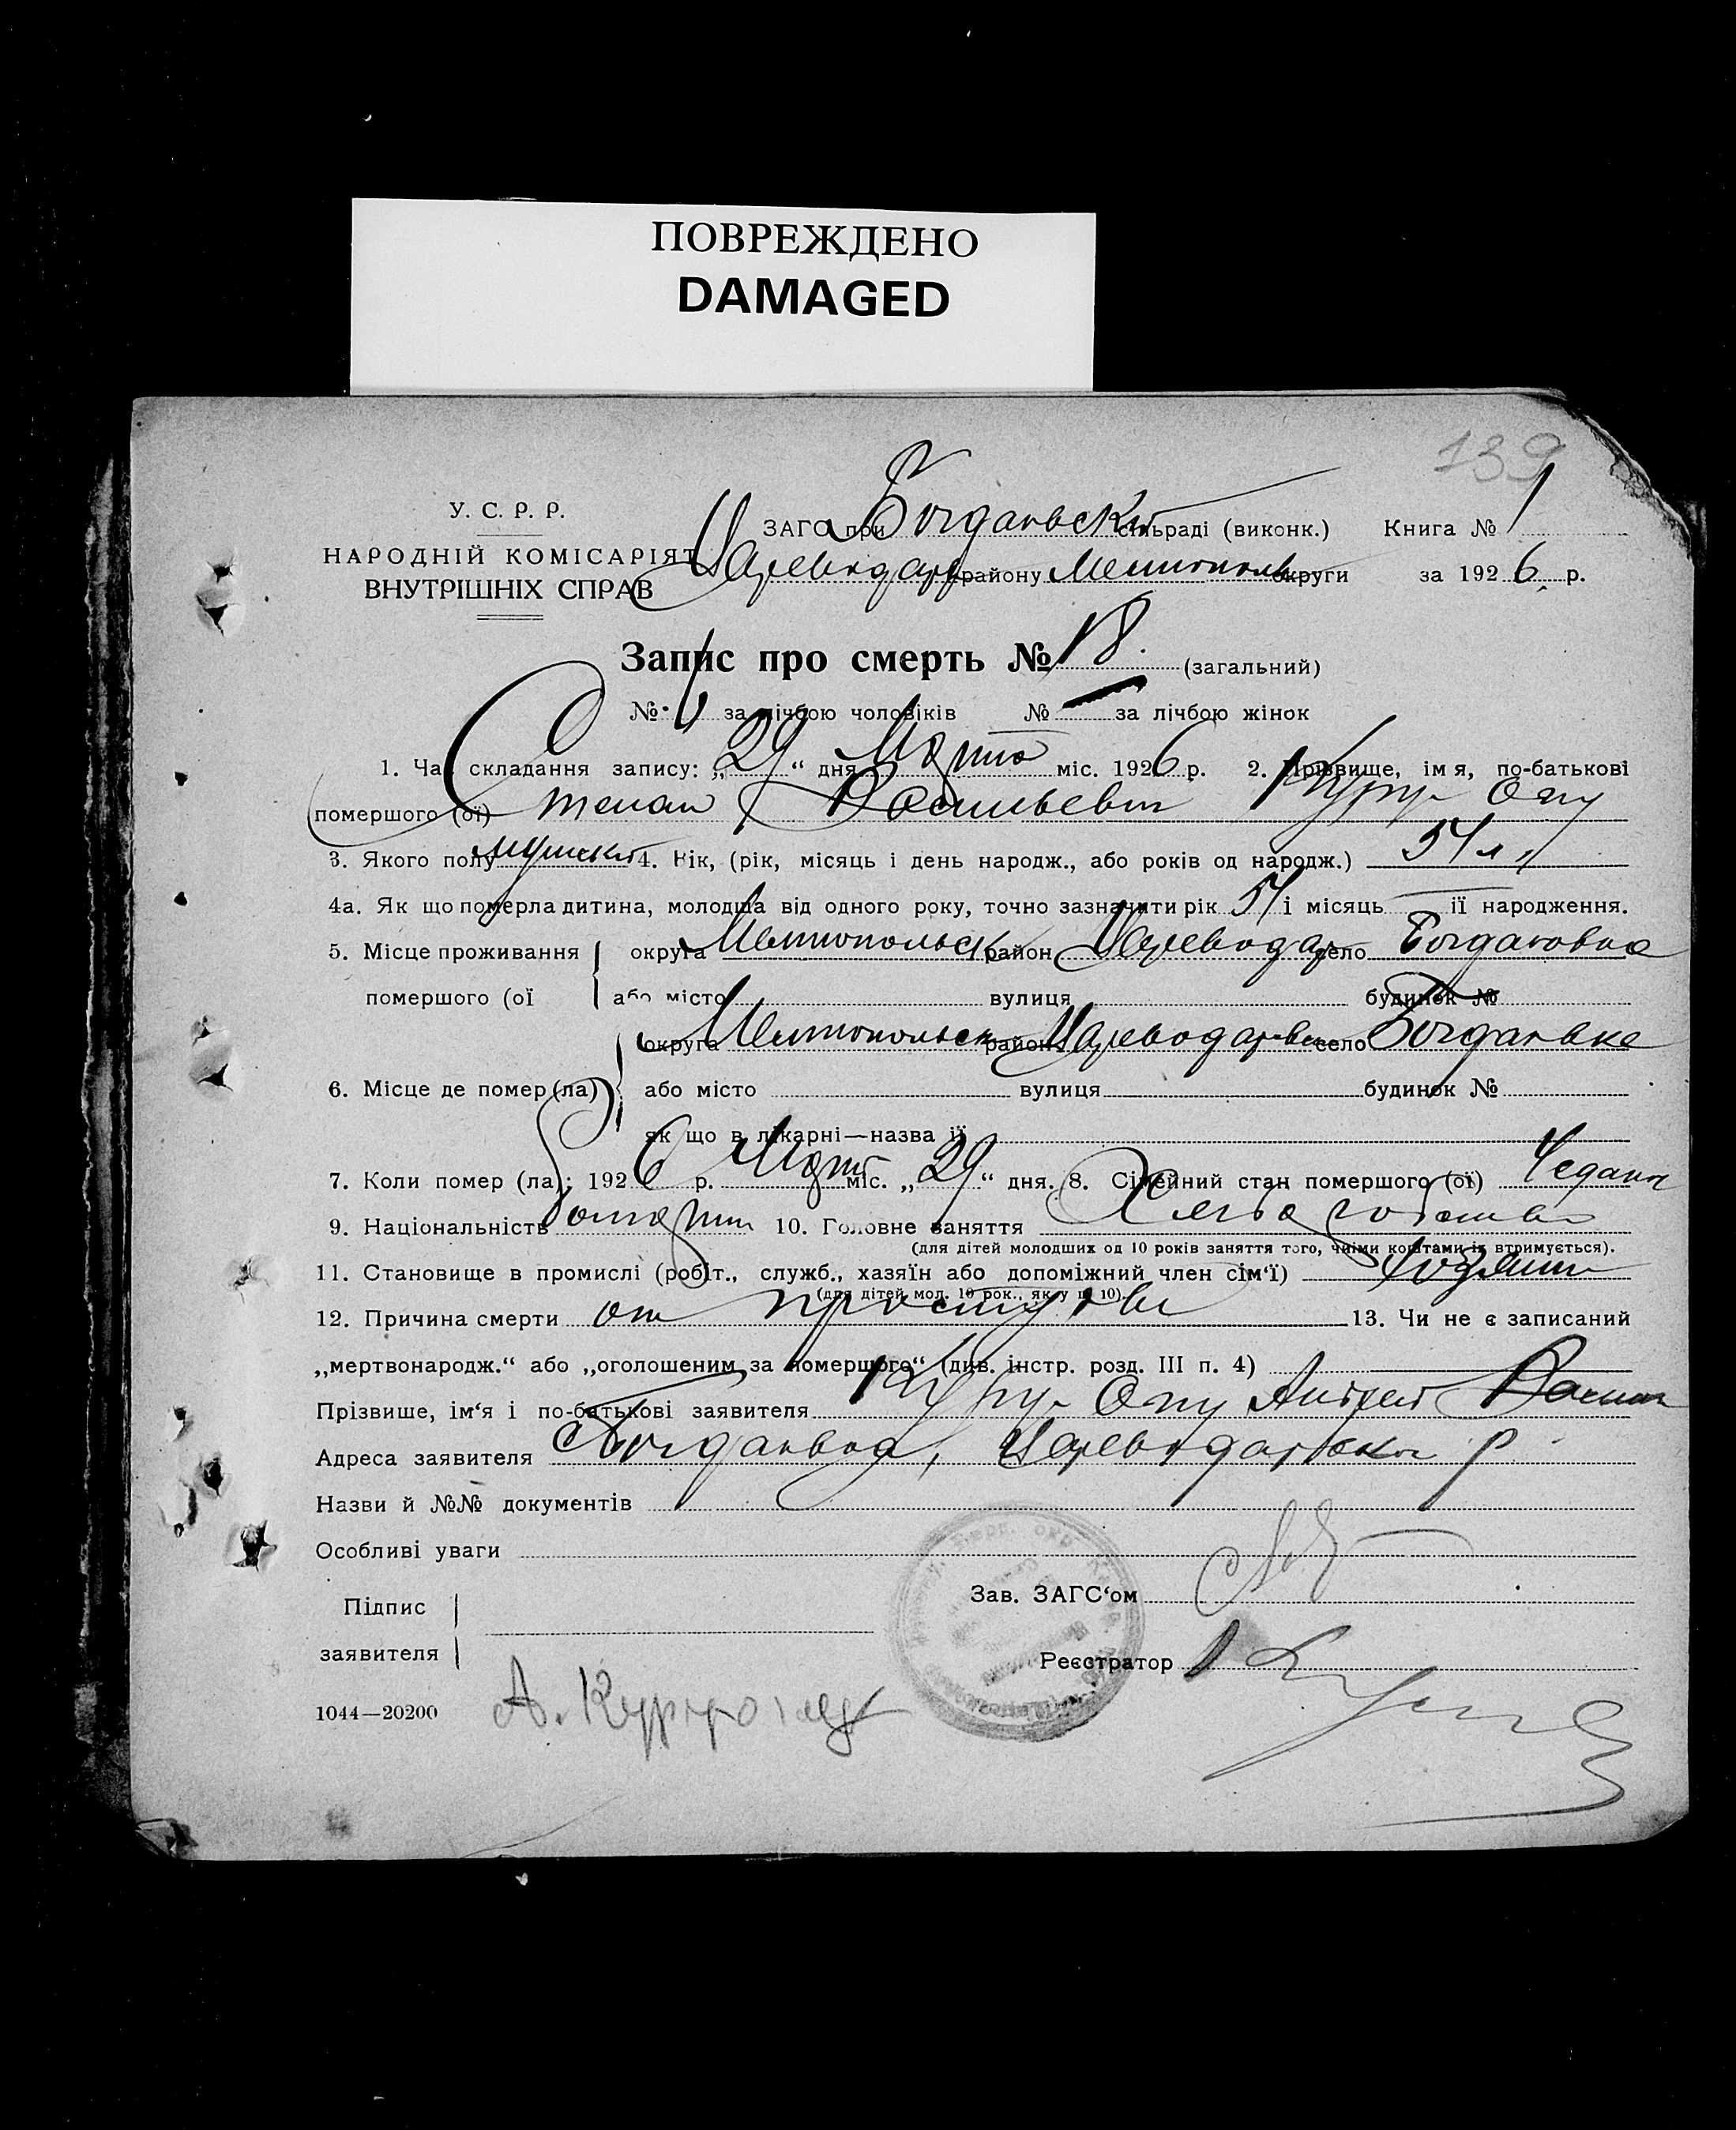 ПОВРЕЖДЕНО
DAMAGED
139
У. С. Р. Р.
НАРОДНІЙ КОМІСАРІЯТ
ВНУТРІШНІХ СПРАВ
ЗАГС при Богдановский сільраді (виконк.) Книга № 1
Цареводар району Мелитополь округи за 1926 р.
Запис про смерть № 18. (загальний)
№ за лічбою чоловіків № — за лічбою жінок
1. Час складання запису: „29“ дня Марта міс. 1926 р. 2. Прізвище, імя, по-батькові
помершого (ої) Степан Васильевич Курт Огу
3. Якого полу мужской 4. Вік, (рік, місяць і день народж., або років од народж.) 54 л
4а. Як що померла дитина, молодша від одного року, точно зазначити рік 54 і місяць — її народження.
5. Місце проживання помершого (ої
округа Мелитопольск район Цареводар село Богдановка
або місто вулиця будинок №
6. Місце де помер (ла)
округа Мелитопольск район Цареводарвск село Богдановка
або місто вулиця будинок №
як що в лікарні—назва її
7. Коли помер (ла): 1926 р. Март міс. „29“ дня. 8. Сімейний стан помершого (ої)
9. Національність Болгарин 10. Головне заняття Хлебаробство
(для дітей молодших од 10 років заняття того, чиїми коштами їх втримується).
11. Становище в промислі (робіт., служб., хазяїн або допоміжний член сім‘ї) хозяин
(для дітей мол. 10 рок., як у п. 10).
12. Причина смерти от простуды 13. Чи не є записаний
„мертвонародж.“ або „оголошеним за помершого“ (див. інстр. розд. III п. 4)
Прізвише, ім‘я і по-батькові заявителя Курт Огу Андрей Васил
Адреса заявителя Богдановка, Цареводарвской р
Назви й №№ документів
Особливі уваги
Зав. ЗАГС‘ом
Підпис
заявителя
Реєстратор
1044—20200
А.